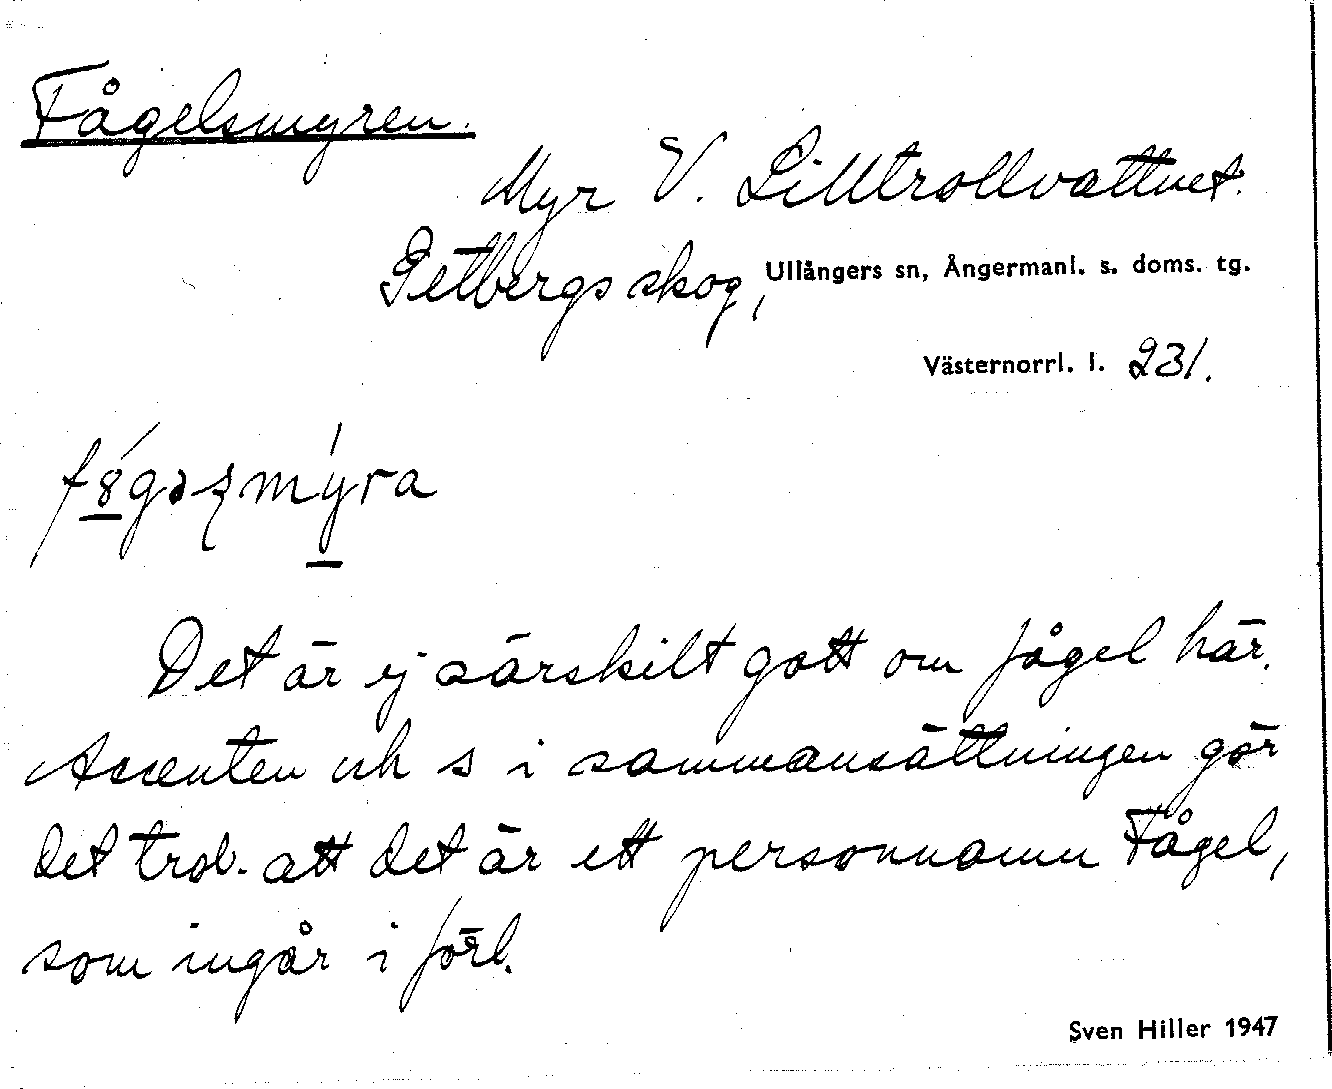 Fågelsmyren.
Myr V. Lilltrollvattnet.
Getbergs skog, Ullångers sn, Ångermanl. s. doms. tg.
Västernorrl. l. 231.
Det är ej särskilt gott om fågel här.
Accenten och s i sammansättningen gör
det trol. att det är ett personnamn Fågel,
som ingår i förl.
Sven Hiller 1947